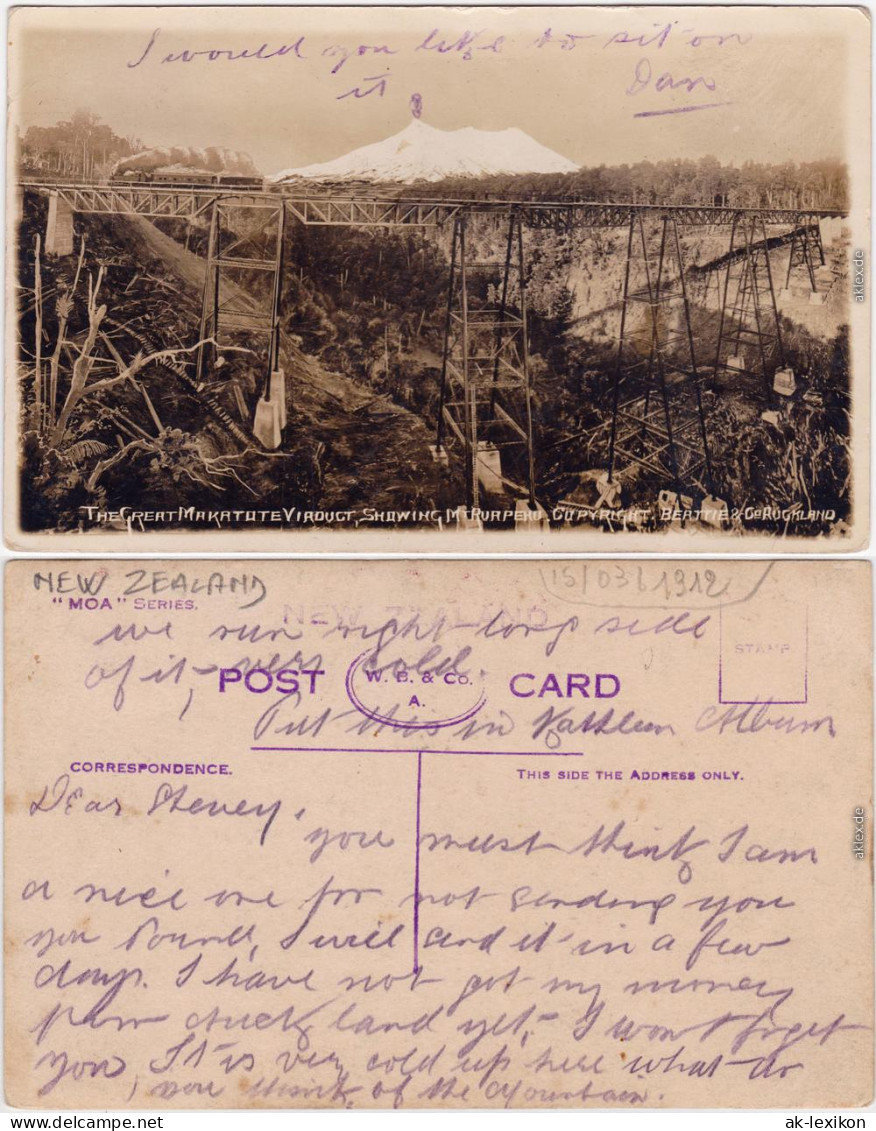 I would you like to sit on
it
Dan
THE GREAT MAKATOTE VIADUCT, SHOWING MT RUAPEHU COPYRIGHT BEATTIE & CO AUCKLAND
NEW ZEALAND
15/03/1912
"MOA" SERIES.
NEW ZEALAND
we run right long side
of it, very cold.
STAMP
POST W. B. & Co. A. CARD
Put this in Kathleen Album
CORRESPONDENCE.
THIS SIDE THE ADDRESS ONLY.
Dear Stevey,
you must think I am
a nice one for not sending you
you Pound, I will send it in a few
days. I have not got my money
land yet, I won't forget
you, It is very cold up here what do
you think of the Mountain.
aklex.de
aklex.de
ak-lexikon